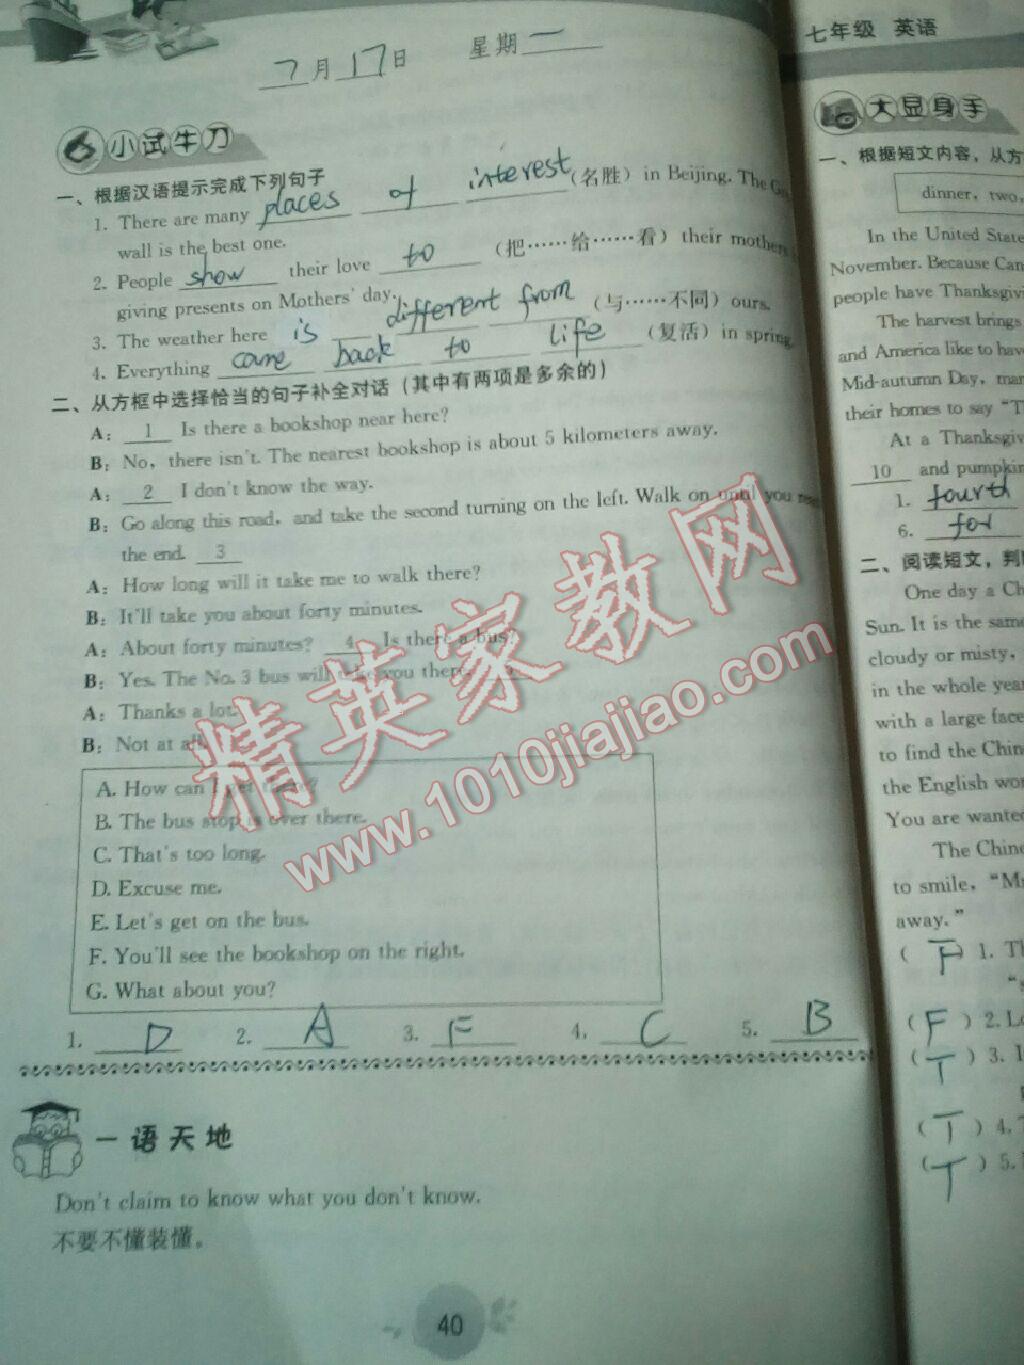 7月17日 星期一
小试牛刀
一、根据汉语提示完成下列句子
1. There are many places of interest (名胜) in Beijing. The
wall is the best one.
2. People show their love to (把……给……看) their mothers
giving presents on Mothers' day.
3. The weather here is different from (与……不同) ours.
4. Everything came back to life (复活) in spring.
二、从方框中选择恰当的句子补全对话(其中有两项是多余的)
A: 1 Is there a bookshop near here?
B: No, there isn't. The nearest bookshop is about 5 kilometers away.
A: 2 I don't know the way.
B: Go along this road, and take the second turning on the left. Walk on until you
the end. 3
A: How long will it take me to walk there?
B: It'll take you about forty minutes.
A: About forty minutes? 4 Is there a bus?
B: Yes. The No. 3 bus will take you there.
A: Thanks a lot.
B: Not at all.
A. How can I get there?
B. The bus stop is over there.
C. That's too long.
D. Excuse me.
E. Let's get on the bus.
F. You'll see the bookshop on the right.
G. What about you?
1. D 2. A 3. F 4. C 5. B
一语天地
Don't claim to know what you don't know.
不要不懂装懂。
40
七年级 英语
大显身手
一、根据短文内容，从方
dinner, two,
In the United State
November. Because Can
people have Thanksgivi
The harvest brings
and America like to have
Mid-autumn Day, man
their homes to say "T
At a Thanksgiv
10 and pumpkin
1. fourth
6. for
二、阅读短文，判
One day a Ch
Sun. It is the same
cloudy or misty,
in the whole year
with a large face
to find the Chin
the English wor
You are wanted
The Chine
to smile, "Mr
away."
( F ) 1. Th
( F ) 2. L
( T ) 3. I
( T ) 4.
( T ) 5.
精英家教网
www.1010jiajiao.com